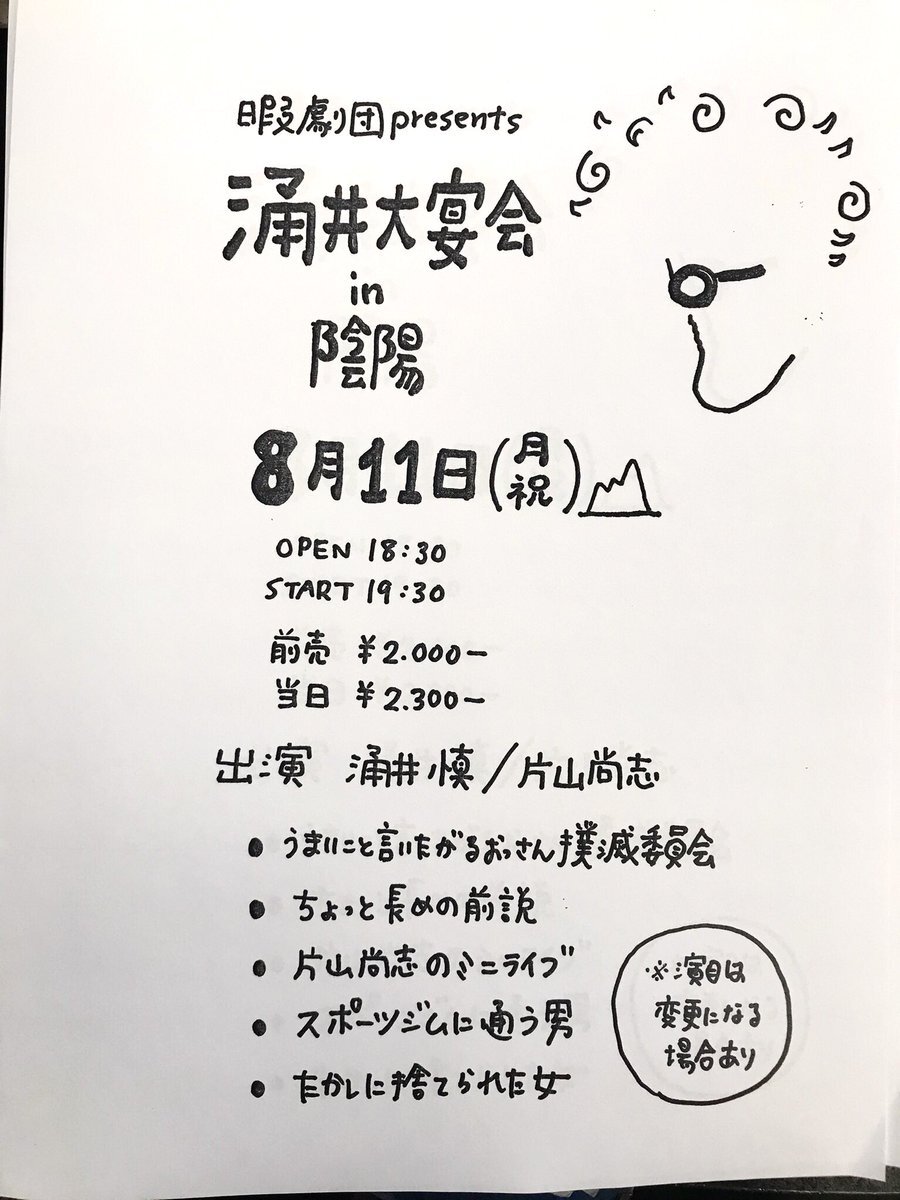 暇劇団presents
涌井大宴会
in
陰陽
8月11日(月祝)
OPEN 18:30
START 19:30
前売 ¥2.000-
当日 ¥2.300-
出演 涌井慎/片山尚志
• うまいこと言いたがるおっさん撲滅委員会
• ちょっと長めの前説
• 片山尚志のミニライブ
• スポーツジムに通う男
• たかしに捨てられた女
※演目は
変更になる
場合あり